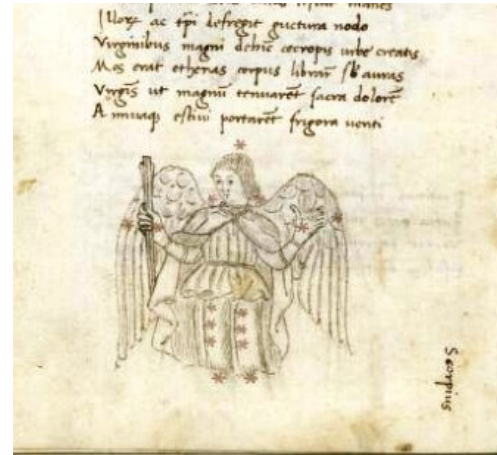 ac defregit guctura nodo
Virginibus magni dehic cecropis urbe creatis
Mos erat etherias corpus librar̄ sb auras
Virgīs ut magnū tenuarēt sacra dolorē
Annuaq estivi portarēt frigora venti
Scorpius